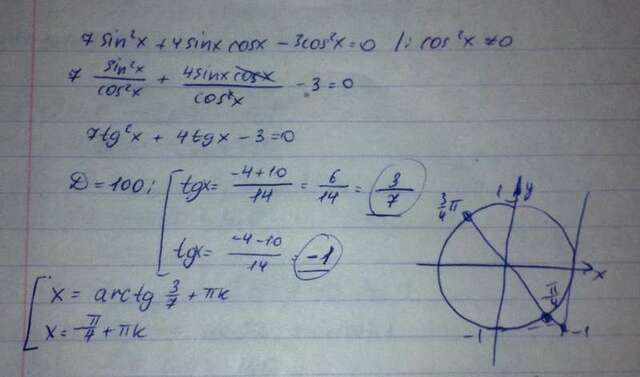 7 sin²x + 4 sinx cosx − 3cos²x = 0 /: cos²x ≠ 0
7 sin²x/cos²x + 4 sinx cosx/cos²x − 3 = 0
7tg²x + 4tgx − 3 = 0
D = 100; [ tgx = (−4+10)/14 = 6/14 = 3/7
tgx = (−4−10)/14 = −1
[ x = arctg 3/7 + πk
x = −π/4 + πk
1 y
3/4 π
x
−π/4
−1 −1